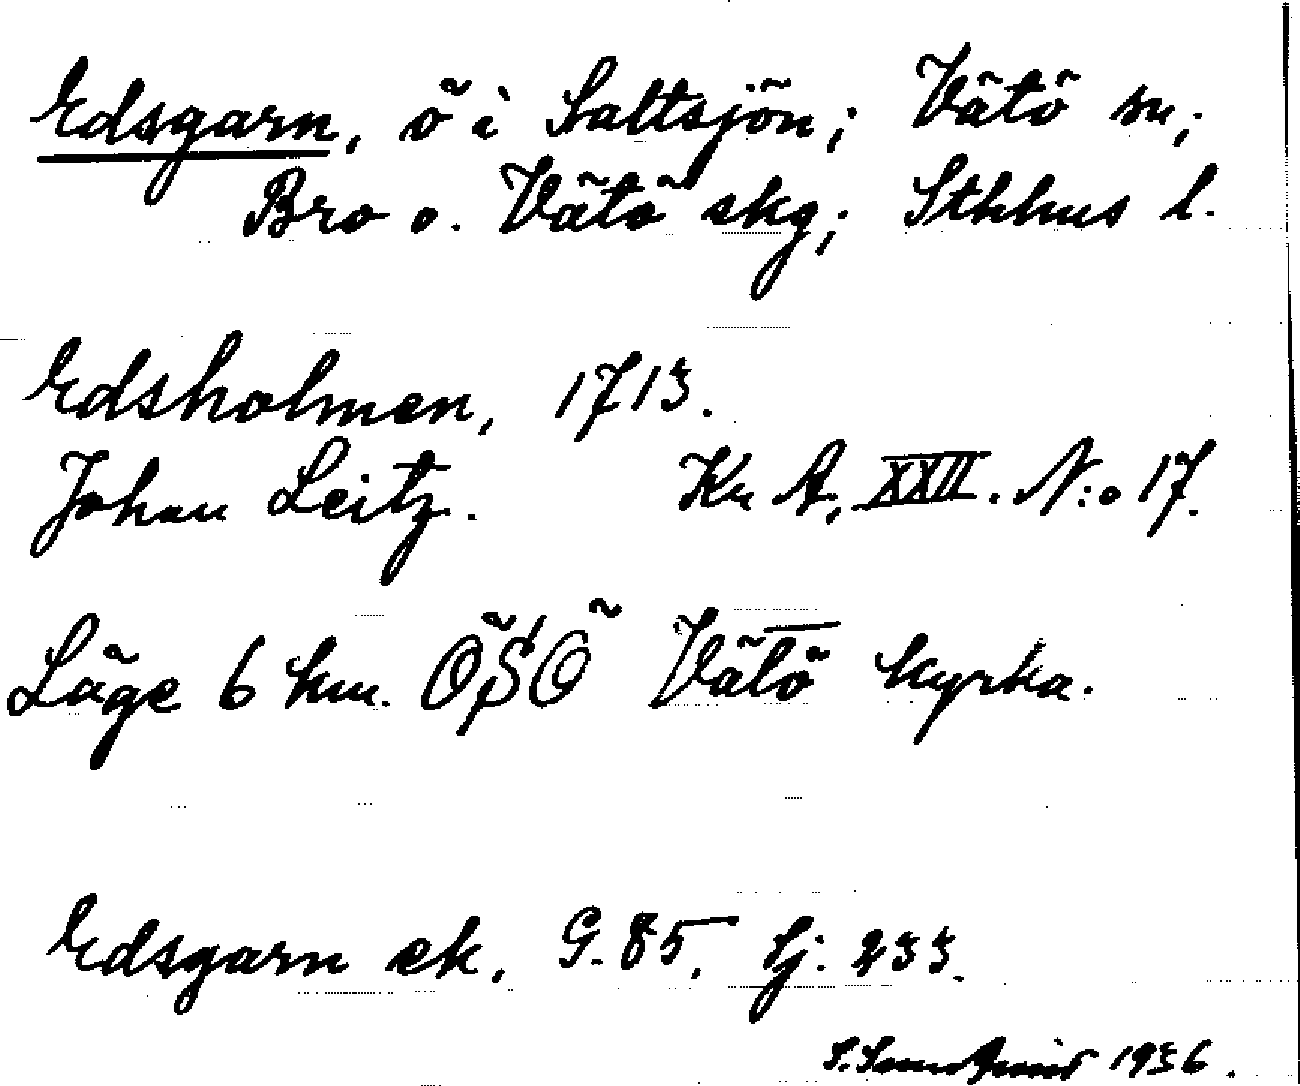 Edsgarn, ö i Saltsjön; Vätö sn;
Bro o. Vätö skg; Sthlms l.
Edsholmen, 1713.
Johan Leitz. Kr A, XXII. N:o 17.
Läge 6 km. ÖSÖ Vätö kyrka.
Edsgarn ek. G. 85, Sj. 233.
S. 1936.